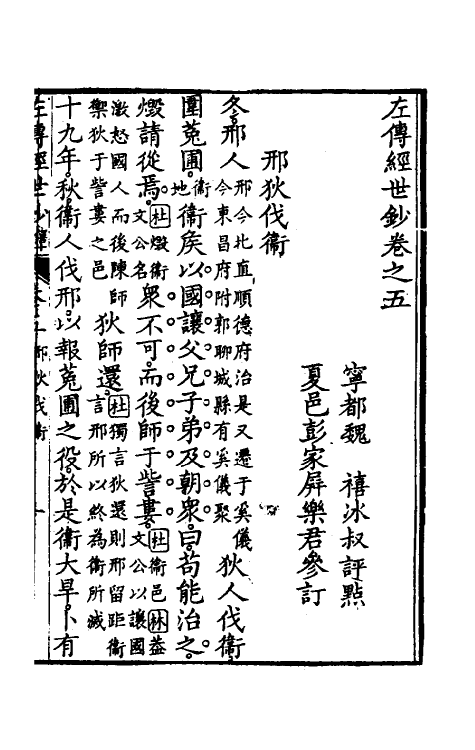 左傳經世鈔卷之五
寧都魏　禧冰叔評點
夏邑彭家屏樂君參訂
邢狄伐衞
冬邢人邢今北直順德府治是又遷于夷儀今東昌府附郭聊城縣有夷儀聚狄人伐衞
圍菟圃衞地衞侯以國讓父兄子弟及朝衆曰苟能治之
燬請從焉杜燬衞文公名衆不可而後師于訾婁杜衞邑林葢文公以讓國
激怒國人而後陳師禦狄于訾婁之邑狄師還杜獨言狄還則邢留距衞言邢所以終為衞所滅
十九年秋衞人伐邢以報菟圃之役於是衞大旱卜有